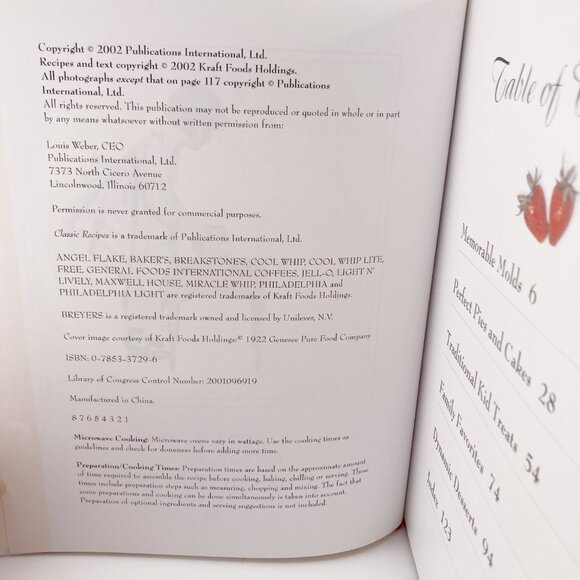 Copyright © 2002 Publications International, Ltd.
Recipes and text copyright © 2002 Kraft Foods Holdings.
All photographs except that on page 117 copyright © Publications
International, Ltd.
All rights reserved. This publication may not be reproduced or quoted in whole or in part
by any means whatsoever without written permission from:
Louis Weber, CEO
Publications International, Ltd.
7373 North Cicero Avenue
Lincolnwood, Illinois 60712
Permission is never granted for commercial purposes.
Classic Recipes is a trademark of Publications International, Ltd.
ANGEL FLAKE, BAKER'S, BREAKSTONE'S, COOL WHIP, COOL WHIP LITE,
FREE, GENERAL FOODS INTERNATIONAL COFFEES, JELL-O, LIGHT N'
LIVELY, MAXWELL HOUSE, MIRACLE WHIP, PHILADELPHIA and
PHILADELPHIA LIGHT are registered trademarks of Kraft Foods Holdings.
BREYERS is a registered trademark owned and licensed by Unilever, N.V.
Cover image courtesy of Kraft Foods Holdings:© 1922 Genesee Pure Food Company
ISBN: 0-7853-3729-6
Library of Congress Control Number: 2001096919
Manufactured in China.
8 7 6 5 4 3 2 1
Microwave Cooking: Microwave ovens vary in wattage. Use the cooking times as
guidelines and check for doneness before adding more time.
Preparation/Cooking Times: Preparation times are based on the approximate amount
of time required to assemble the recipe before cooking, baking, chilling or serving. These
times include preparation steps such as measuring, chopping and mixing. The fact that
some preparations and cooking can be done simultaneously is taken into account.
Preparation of optional ingredients and serving suggestions is not included.
Table of
Memorable Molds 6
Perfect Pies and Cakes 28
Traditional Kid Treats 54
Family Favorites 74
Dynamic Desserts 94
Index 123